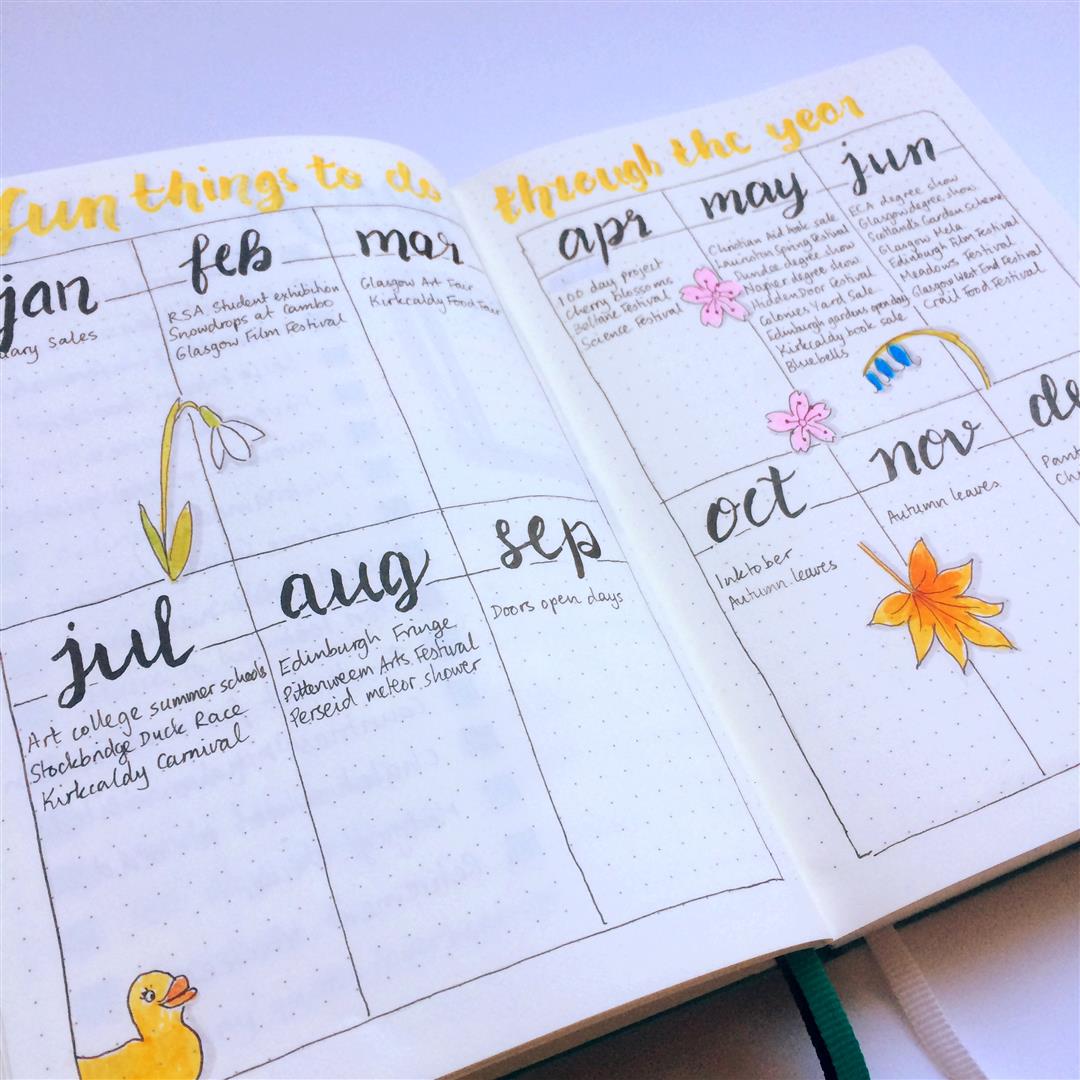 fun things to do
jan
sales
feb
RSA Student exhibition
Snowdrops at Cambo
Glasgow Film Festival
mar
Glasgow Art Fair
Kirkcaldy Food Fair
jul
Art college summer schools
Stockbridge Duck Race
Kirkcaldy Carnival
aug
Edinburgh Fringe
Pittenweem Arts Festival
Perseid meteor shower
sep
Doors open days
through the year
apr
100 day project
Cherry blossoms
Beltane Festival
Science Festival
may
Christian Aid book sale
Lauriston Spring Festival
Dundee degree show
Napier degree show
Hidden Door Festival
Colonies Yard Sale
Edinburgh gardens open day
Kirkcaldy book sale
Bluebells
jun
ECA degree show
Glasgow degree show
Scotland's Garden Scheme
Glasgow Mela
Edinburgh Film Festival
Meadows Festival
Glasgow West End Festival
Crail Food Festival
oct
Inktober
Autumn leaves
nov
Autumn leaves